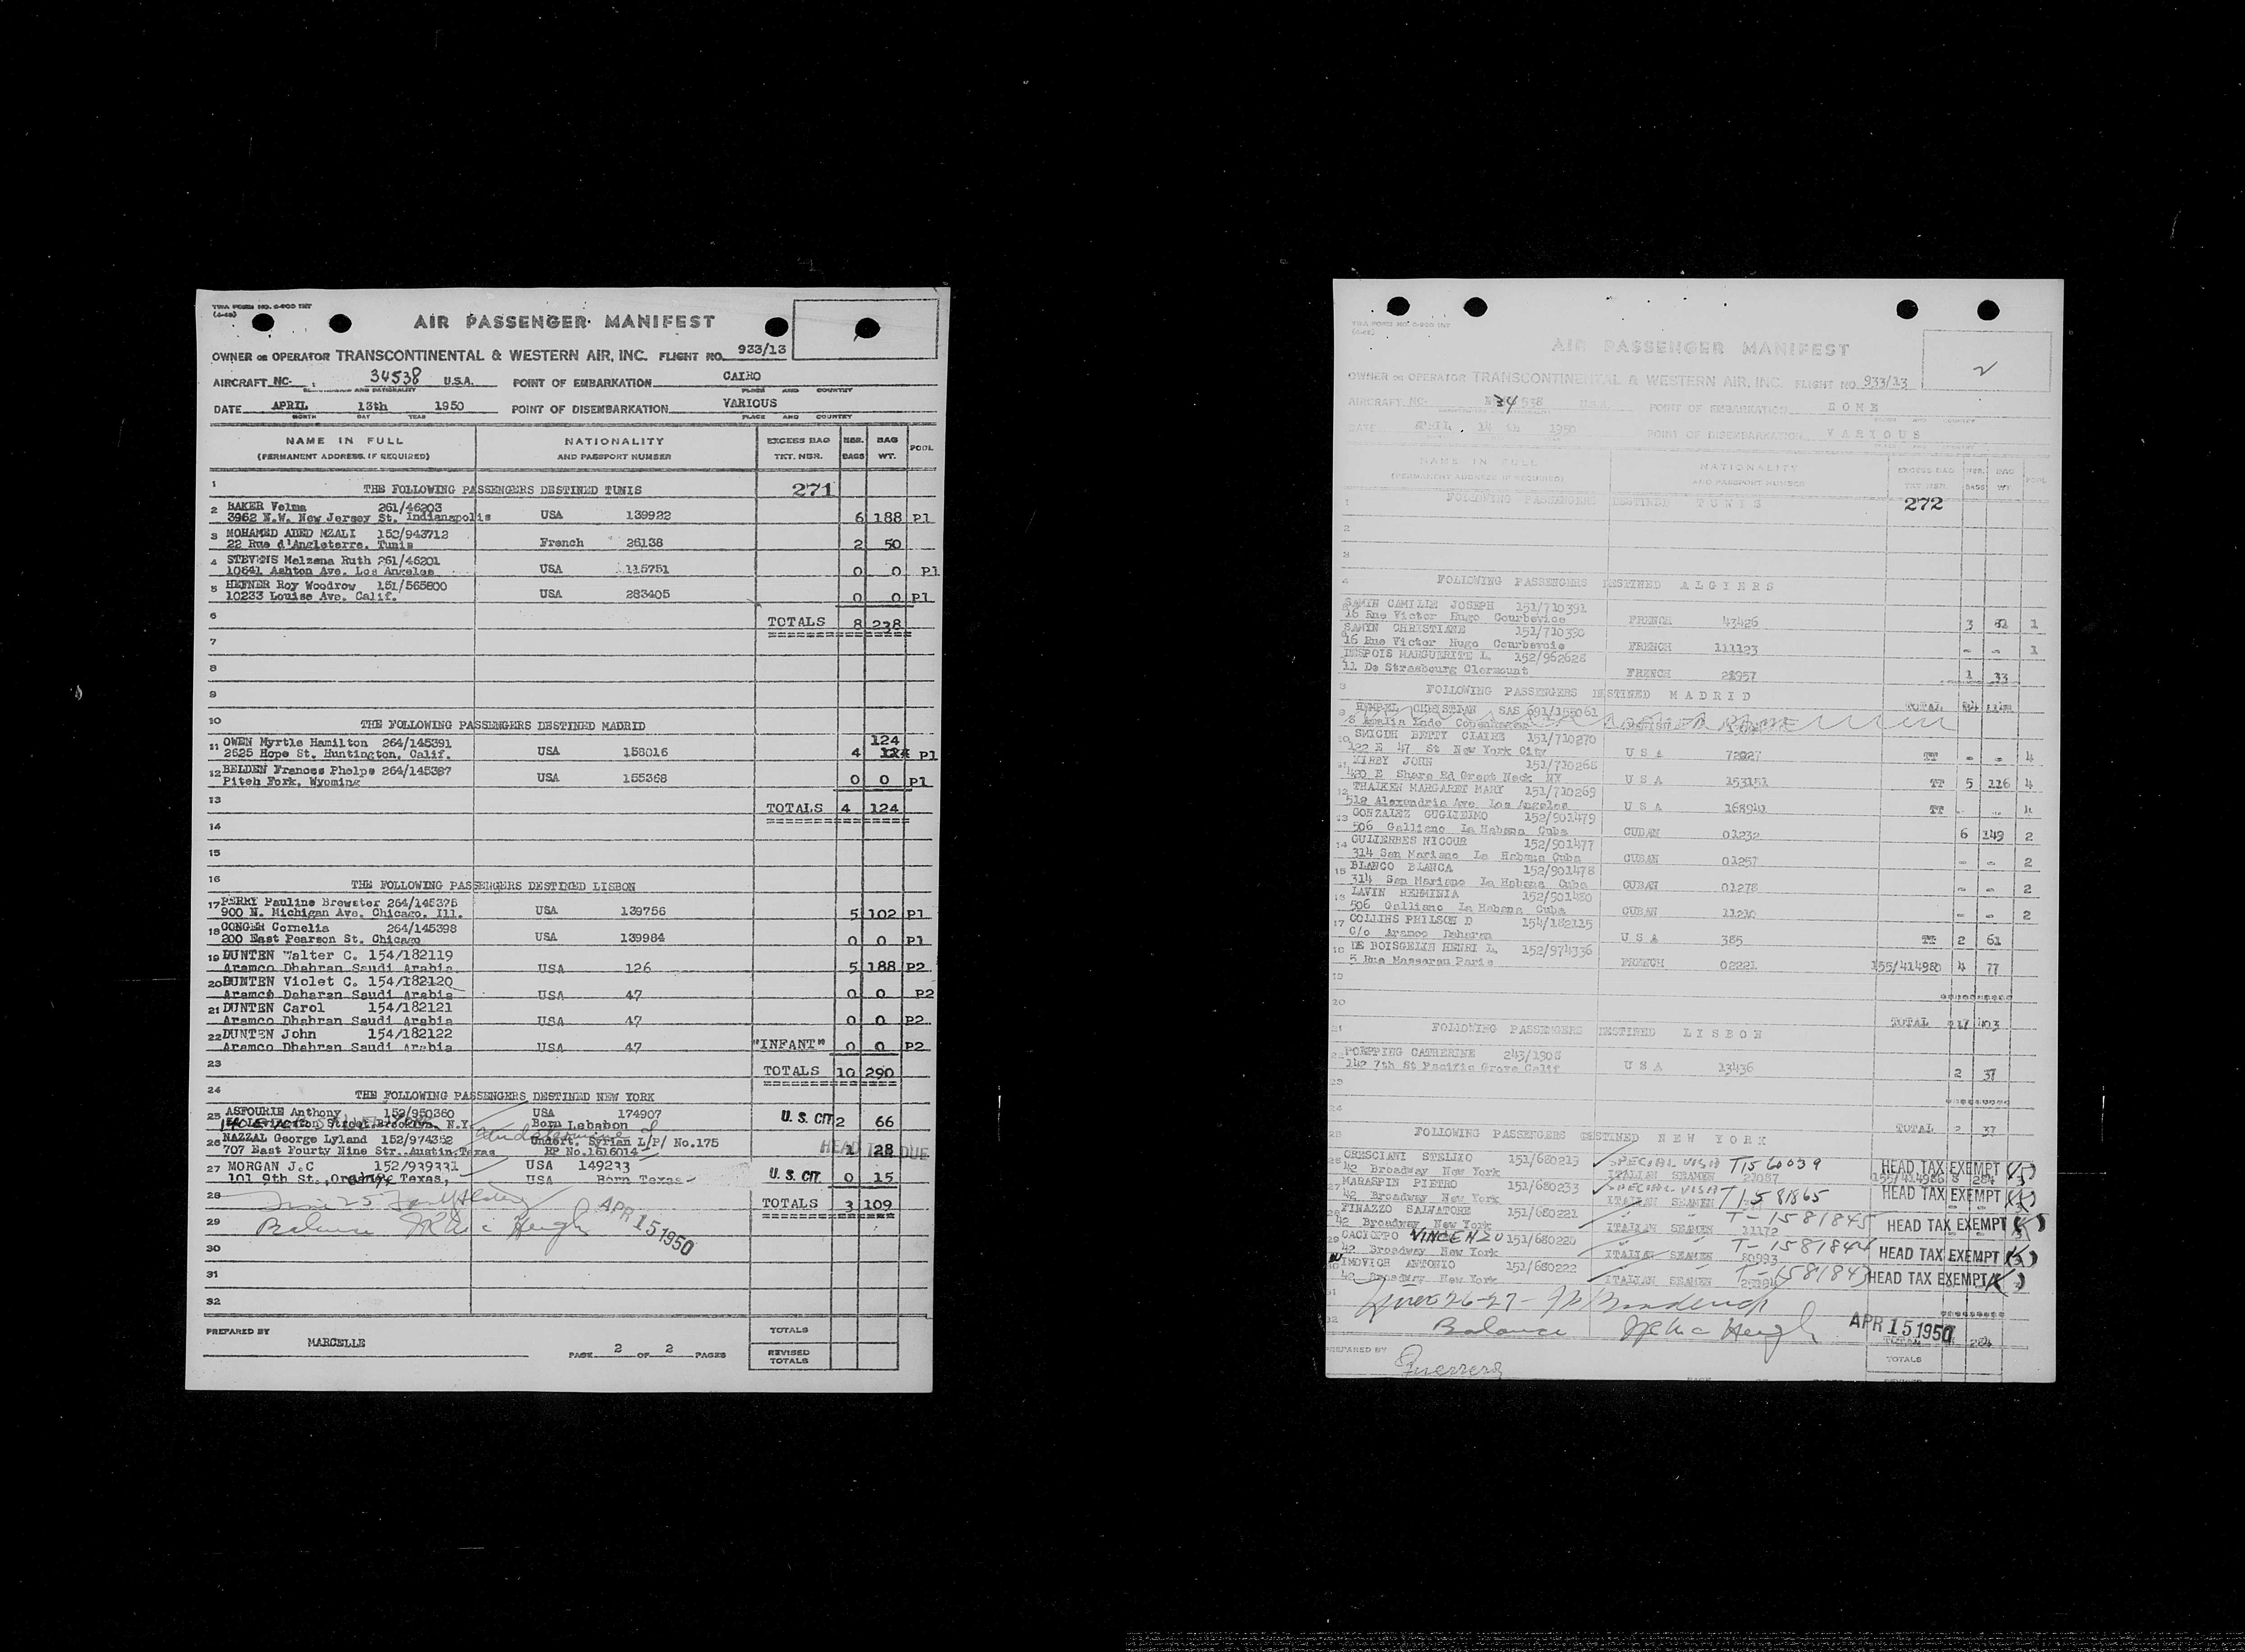 TWA FORM NO. 0-900 INT
(4-48)
AIR PASSENGER MANIFEST
OWNER OR OPERATOR TRANSCONTINENTAL & WESTERN AIR, INC. FLIGHT NO. 933/13
AIRCRAFT NC- 34538 U.S.A. POINT OF EMBARKATION CAIRO
PLACE AND COUNTRY
DATE APRIL 13th 1950 POINT OF DISEMBARKATION VARIOUS
MONTH DAY YEAR PLACE AND COUNTRY
NAME IN FULL NATIONALITY EXCESS BAG NBR. BAG POOL
(PERMANENT ADDRESS IF REQUIRED) AND PASSPORT NUMBER TKT. NBR. BAGS WT.
1 THE FOLLOWING PASSENGERS DESTINED TUNIS 271
2 BAKER Velma 261/46203
3962 N.W. New Jersey St. Indianapolis USA 139922 6 188 P1
3 MOHAMED ABED MZALI 152/943712
22 Rue d'Angleterre. Tunis French 26138 2 50
4 STEVENS Melzena Ruth 261/46201
10641 Ashton Ave. Los Angeles USA 115751 0 0 P1
5 HEFNER Roy Woodrow 151/565800
10233 Louise Ave. Calif. USA 283405 0 0 P1
6 TOTALS 8 238
7
8
9
10 THE FOLLOWING PASSENGERS DESTINED MADRID
124
11 OWEN Myrtle Hamilton 264/145391
2625 Hope St. Huntington, Calif. USA 158016 4 124 P1
12 BELDEN Frances Phelps 264/145387
Piteh Fork, Wyoming USA 155368 0 0 P1
13 TOTALS 4 124
14
15
16 THE FOLLOWING PASSENGERS DESTINED LISBON
17 PERRY Pauline Brewster 264/145378
900 N. Michigan Ave. Chicago. Ill. USA 139756 5 102 P1
18 CONGER Cornelia 264/145398
200 East Pearson St. Chicago USA 139984 0 0 P1
19 DUNTEN Walter C. 154/182119
Aramco Dhahran Saudi Arabia USA 126 5 188 P2
20 DUNTEN Violet C. 154/182120
Aramco Daharan Saudi Arabia USA 47 0 0 P2
21 DUNTEN Carol 154/182121
Aramco Dhahran Saudi Arabia USA 47 0 0 P2
22 DUNTEN John 154/182122
Aramco Dhahran Saudi Arabia USA 47 "INFANT" 0 0 P2
23 TOTALS 10 290
24 THE FOLLOWING PASSENGERS DESTINED NEW YORK
25 ASFOURIE Anthony 152/950360 USA 174907 U. S. CIT 2 66
Street Brooklyn, N.Y. Born Lebabon
26 NAZZAL George Lyland 152/974352 Undert. Syrian L/P/ No.175 HEAD TAX DUE 1 28
707 East Fourty Nine Str. Austin, Texas RP No.1616014
27 MORGAN J.C 152/939331 USA 149233
101 9th St., Orange Texas, USA Born Texas U. S. CIT 0 15
28 TOTALS 3 109
29 Balance APR 15 1950
30
31
32
PREPARED BY MARCELLE PAGE 2 OF 2 PAGES
TOTALS
REVISED TOTALS
TWA FORM NO. 0-900 INT
2
AIR PASSENGER MANIFEST
OWNER OR OPERATOR TRANSCONTINENTAL & WESTERN AIR, INC. FLIGHT NO. 933/13
AIRCRAFT NC- 34538 U.S.A. POINT OF EMBARKATION ROME
DATE APRIL 14 th 1950 POINT OF DISEMBARKATION VARIOUS
NAME IN FULL NATIONALITY EXCESS BAG NBR. BAG POOL
(PERMANENT ADDRESS IF REQUIRED) AND PASSPORT NUMBER TKT. NBR. BAGS WT.
1 FOLLOWING PASSENGERS DESTINED TUNIS 272
2
3
4 FOLLOWING PASSENGERS DESTINED ALGIERS
SAMYN CAMILLE JOSEPH 151/710391
16 Rue Victor Hugo Courbevice FRENCH 43426 3 81 1
SAMYN CHRISTIANE 151/710390
16 Rue Victor Hugo Courbevoie FRENCH 111123 - - 1
DESPOIS MARGUERITE L. 152/962628
11 De Strasbourg Clermount FRENCH 28957 1 33
8 FOLLOWING PASSENGERS DESTINED MADRID TOTAL 4 114
9 HEMPEL CHRISTIAN SAS 691/155061
10 SMIGIH BETTY CLAIRE 151/710270
122 E 47 St New York City U S A 72827 TT - - 4
11 KIRBY JOHN 151/710268
420 E Shore Rd Great Neck NY U S A 153151 TT 5 116 4
12 THAIKEN MARGARET MARY 151/710269
512 Alexandria Ave Los Angeles U S A 168941 TT - - 4
13 GONZALEZ GUGLIEIMO 152/901479
506 Galliano La Habana Cuba CUBAN 01232 6 149 2
14 GULIERRES NICOUR 152/901477
314 San Mariano La Habana Cuba CUBAN 01257 - - 2
15 BLANCO BLANCA 152/901478
314 San Mariano La Habana Cuba CUBAN 01278 - - 2
16 LAVIN HERMINIA 152/901480
506 Galliano La Habana Cuba CUBAN 11210 - - 2
17 COLLINS PHILSON D 154/182115
C/o Aramco Daharan U S A 385 TT 2 61
18 DE BOISGELIN HENRI L. 152/974336
5 Rue Masseran Paris FRENCH 02221 155/414980 4 77
19
20 TOTAL 17 403
21 FOLLOWING PASSENGERS DESTINED LISBON
22 POEPPING CATHERINE 243/1908
142 7th St Pacific Grove Calif U S A 13436 2 37
23
24 TOTAL 2 37
25 FOLLOWING PASSENGERS DESTINED NEW YORK
26 CRESCIANI STELIIO 151/680219 SPECIAL VISA T1560039 HEAD TAX EXEMPT
42 Broadway New York ITALIAN SEAMEN 27087 155/414986 8 284
27 MARASPIN PIETRO 151/680233 SPECIAL VISA T1581865 HEAD TAX EXEMPT
42 Broadway New York ITALIAN SEAMEN
28 FINAZZO SALVATORE 151/680221 T-1581845 HEAD TAX EXEMPT
42 Broadway New York ITALIAN SEAMEN 11172
29 CACIOPPO VINCENZO 151/680220 T-1581844 HEAD TAX EXEMPT
42 Broadway New York ITALIAN SEAMEN 80993
30 IMOVICH ANTONIO 151/680222 T-1581843 HEAD TAX EXEMPT
42 Broadway New York ITALIAN SEAMEN
31 Lines 26-27-
32 Balance APR 15 1950
TOTAL 284
PREPARED BY Guerrera
TOTALS